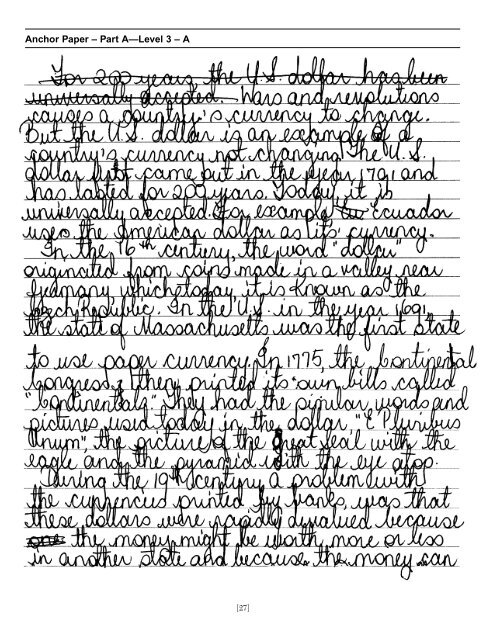 Anchor Paper – Part A—Level 3 – A
For 200 years, the U.S. dollar has been
universally accepted. Wars and revolutions
causes a country's currency to change.
But the U.S. dollar is an example of a
country's currency not changing. The U.S.
dollar first came out in the year 1791 and
has lasted for 200 years. Today it is
universally accepted. For example, Ecuador
uses the American dollar as its currency.
In the 16th century, the word "dollar"
originated from coins made in a valley near
Germany which today it is known as the
Czech Republic. In the U.S. in the year 1691,
the state of Massachusetts was the first state
to use paper currency. In 1775, the Continental
Congress there printed its own bills called
"Continentals." They had the similar words and
pictures used today in the dollar, "E Pluribus
Unum", the picture of the great seal with the
eagle and the pyramid with the eye atop.
During the 19th century a problem with
the currencies printed by banks, was that
these dollars were rapidly devalued because
the money might be worth more or less
in another state and because the money can
[27]